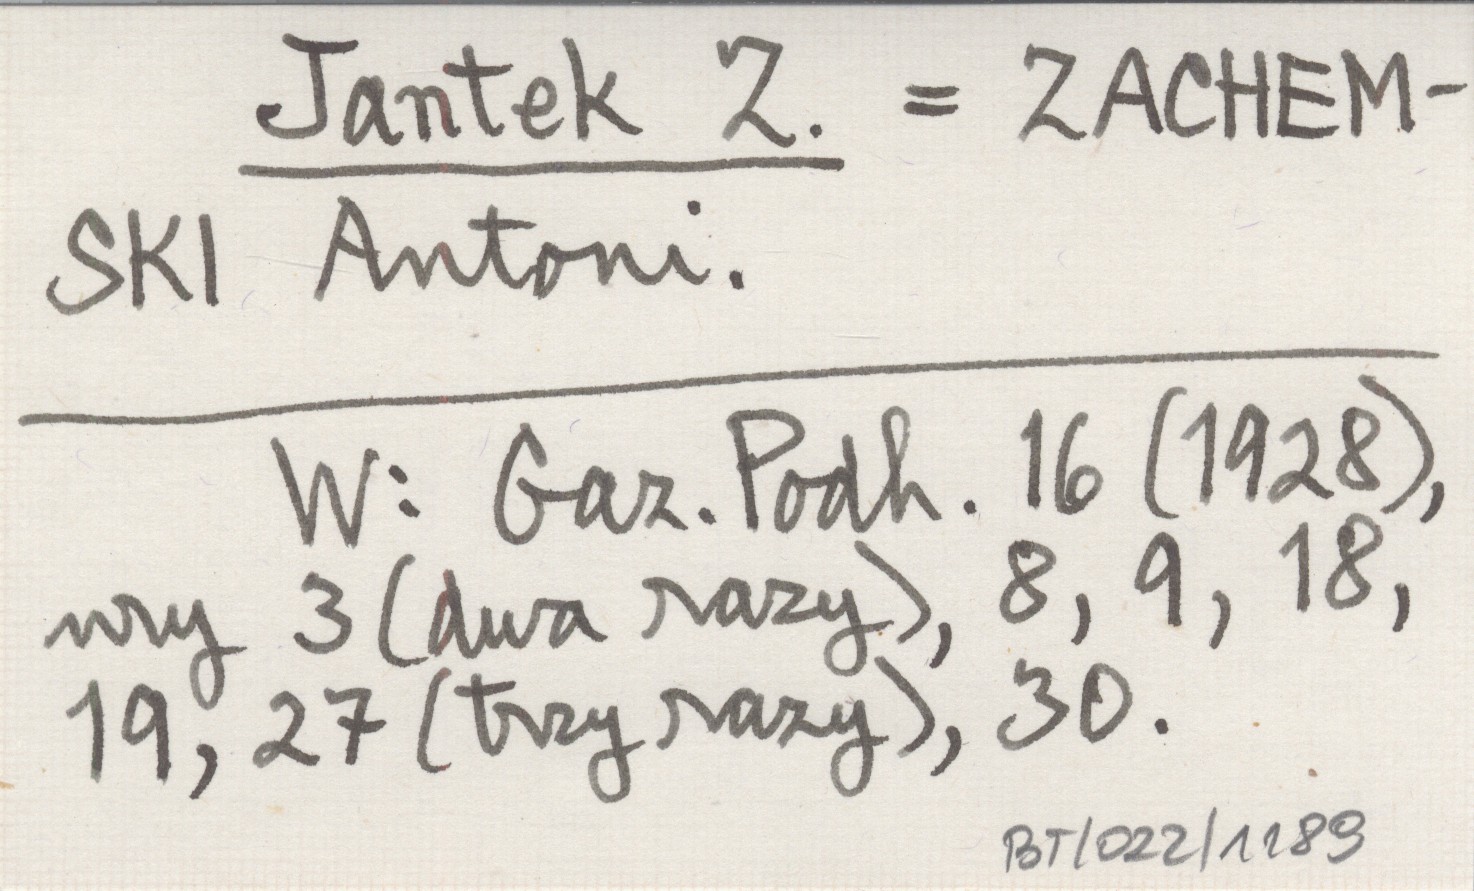 Jantek Z. = ZACHEM-
SKI Antoni.
W: Gaz. Podh. 16 (1928),
nry 3 (dwa razy), 8, 9, 18,
19, 27 (trzy razy), 30.
BT/022/1189